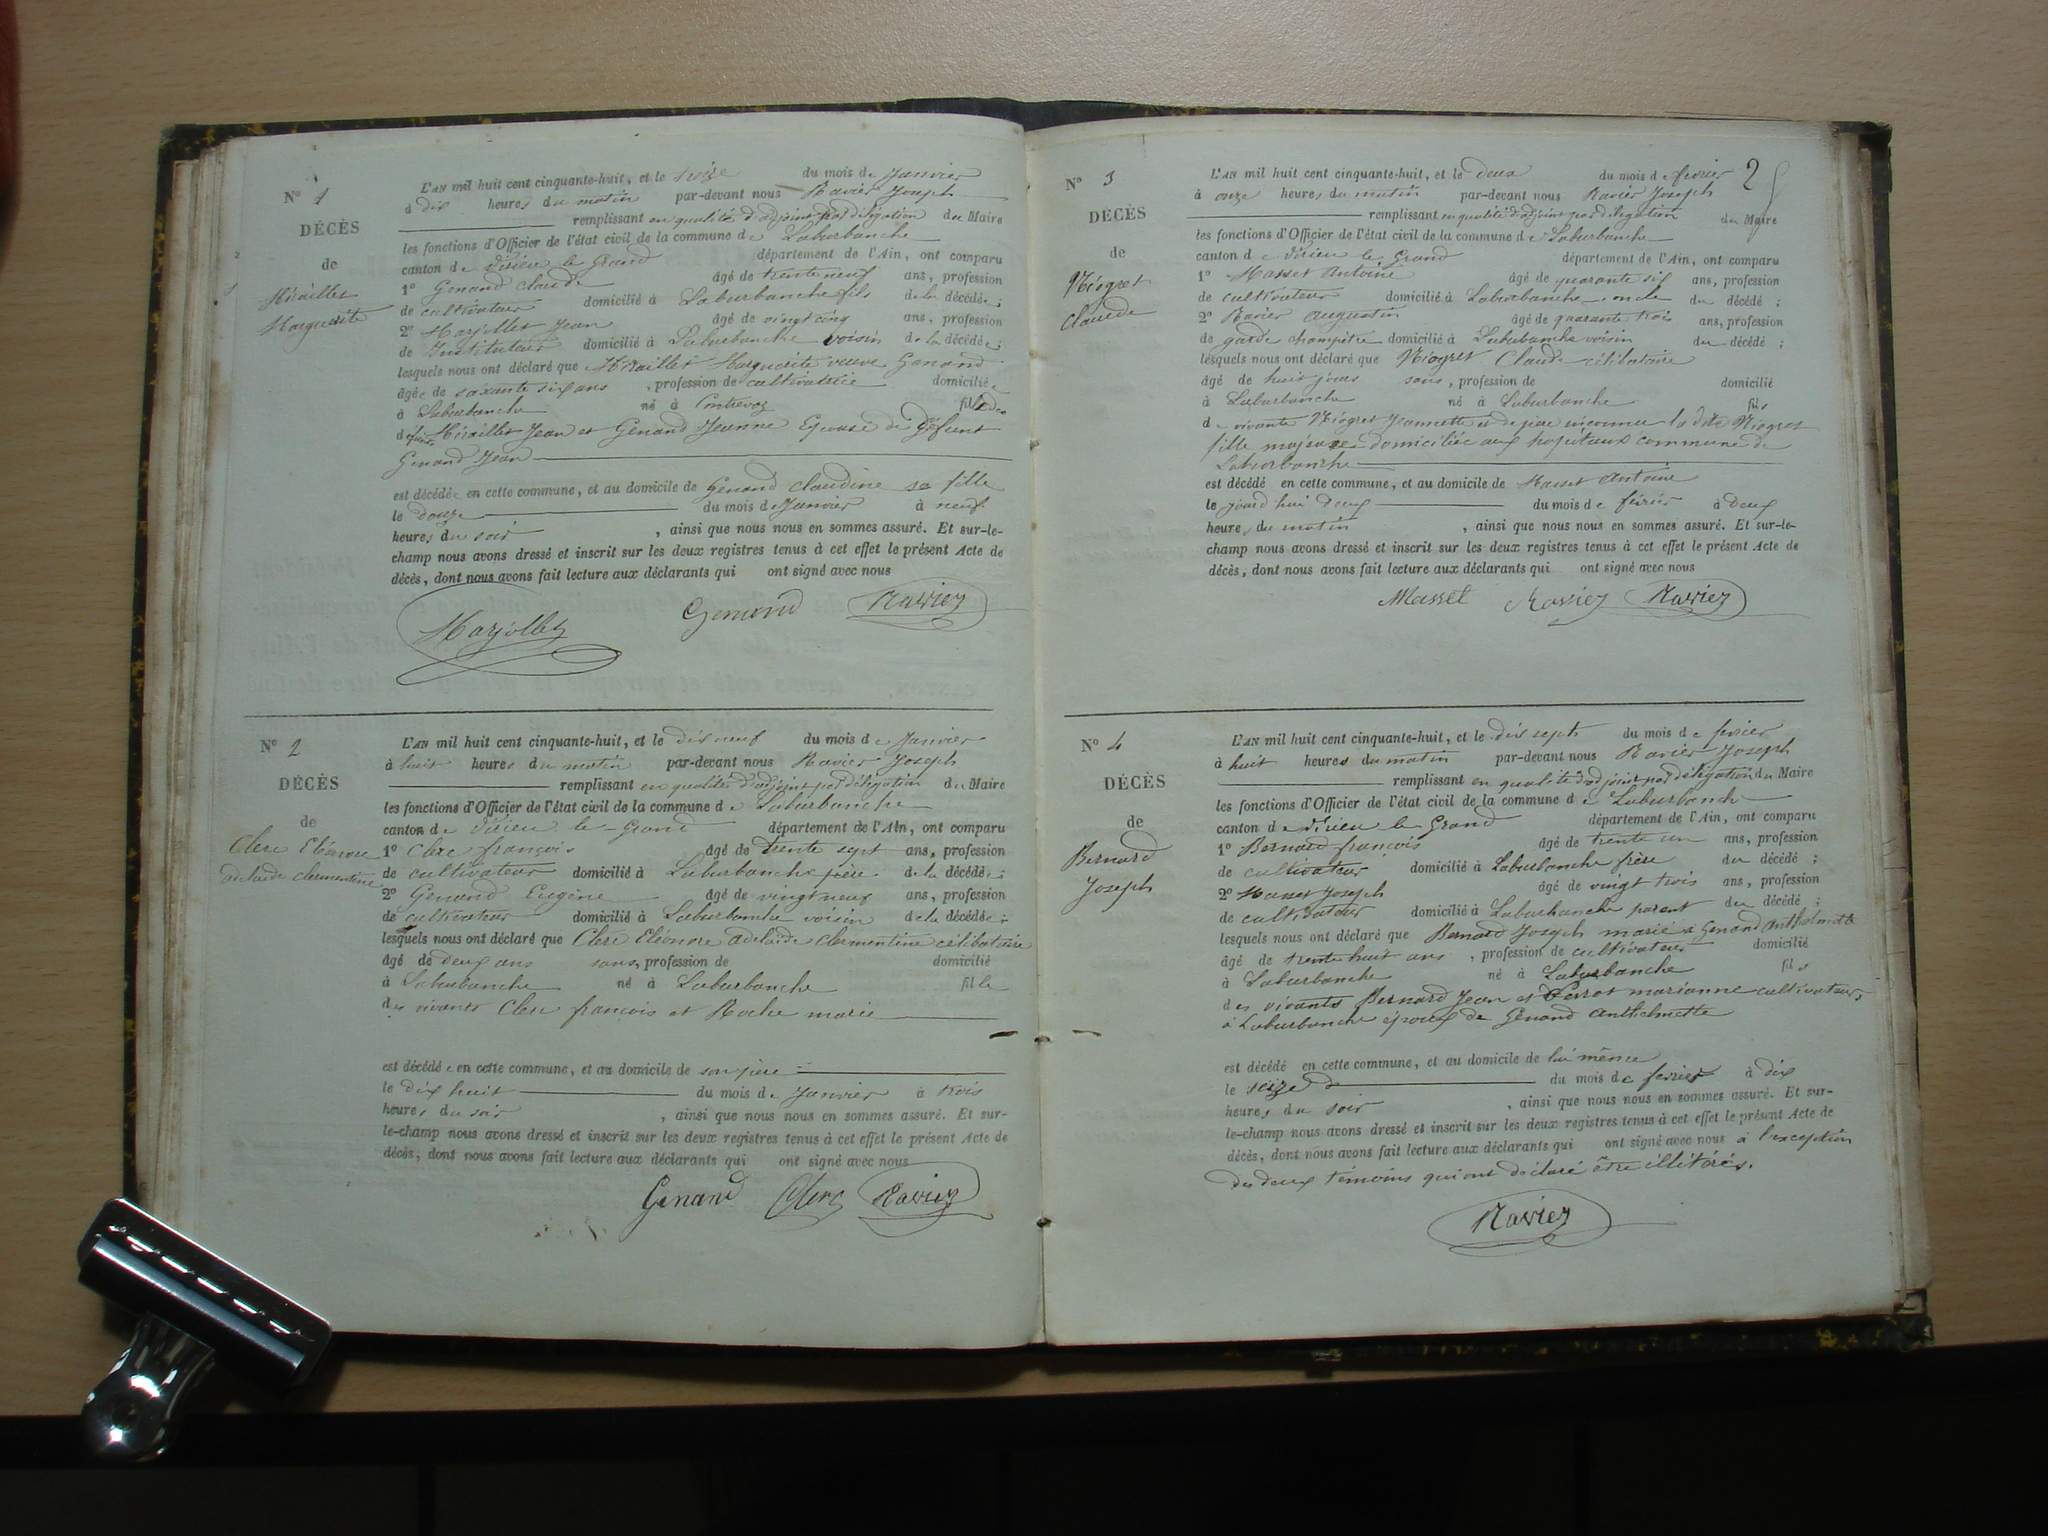 N° 1
DÉCÈS
de
Miraillet
Marguerite
L'AN mil huit cent cinquante-huit, et le treize du mois de Janvier
à dix heures du matin par-devant nous Ravier Joseph
remplissant en qualité d'adjoint par délégation du Maire
les fonctions d'Officier de l'état civil de la commune de Laburbanche
canton de Virieu le Grand département de l'Ain, ont comparu
1° Genand Claude âgé de trente neuf ans, profession
de cultivateur domicilié à Laburbanche fils de la décédée;
2° Marjollet Jean âgé de vingt cinq ans, profession
de Instituteur domicilié à Laburbanche voisin de la décédée;
lesquels nous ont déclaré que Miraillet Marguerite veuve Genand
âgée de soixante six ans, profession de cultivatrice domiciliée
à Laburbanche né à Contrevoz fille des
défunts Miraillet Jean et Genand Jeanne Epouse de Défunt
Genand Jean
est décédée en cette commune, et au domicile de Genand Claudine sa fille
le douze du mois de Janvier à neuf
heures du soir, ainsi que nous nous en sommes assuré. Et sur-le-
champ nous avons dressé et inscrit sur les deux registres tenus à cet effet le présent Acte de
décès, dont nous avons fait lecture aux déclarants qui ont signé avec nous
Marjollet Genand Ravier
N° 2
DÉCÈS
de
Clerc Eléonore
adelaïde clermentine
L'AN mil huit cent cinquante-huit, et le dix neuf du mois de Janvier
à huit heures du matin par-devant nous Ravier Joseph
remplissant en qualité d'adjoint par délégation du Maire
les fonctions d'Officier de l'état civil de la commune de Laburbanche
canton de Virieu le Grand département de l'Ain, ont comparu
1° Clerc françois âgé de trente sept ans, profession
de cultivateur domicilié à Laburbanche père de la décédée;
2° Genand Eugène âgé de vingt neuf ans, profession
de cultivateur domicilié à Laburbanche voisin de la décédée;
lesquels nous ont déclaré que Clerc Eléonore adelaïde clermentine célibataire
âgé de deux ans sans, profession de domicilié
à Laburbanche né à Laburbanche fille
des vivants Clerc françois et Roche marie
est décédée en cette commune, et au domicile de son père
le dix huit du mois de Janvier à trois
heures du soir, ainsi que nous nous en sommes assuré. Et sur-
le-champ nous avons dressé et inscrit sur les deux registres tenus à cet effet le présent Acte de
décès, dont nous avons fait lecture aux déclarants qui ont signé avec nous
Genand Clerc Ravier
2
N° 3
DÉCÈS
de
Niogret
Claude
L'AN mil huit cent cinquante-huit, et le deux du mois de février
à onze heures du matin par-devant nous Ravier Joseph
remplissant en qualité d'adjoint par délégation du Maire
les fonctions d'Officier de l'état civil de la commune de Laburbanche
canton de Virieu le Grand département de l'Ain, ont comparu
1° Masset Antoine âgé de quarante six ans, profession
de cultivateur domicilié à Laburbanche oncle du décédé;
2° Ravier augustin âgé de quarante trois ans, profession
de garde champêtre domicilié à Laburbanche voisin du décédé;
lesquels nous ont déclaré que Niogret Claude célibataire
âgé de huit jours sans, profession de domicilié
à Laburbanche né à Laburbanche fils
de vivante Niogret Jeannette et de père inconnu la dite Niogret
fille majeure domiciliée aux hopitaux commune de
Laburbanche
est décédé en cette commune, et au domicile de Masset Antoine
le jourd'hui deux du mois de février à Deux
heures du matin, ainsi que nous nous en sommes assuré. Et sur-le-
champ nous avons dressé et inscrit sur les deux registres tenus à cet effet le présent Acte de
décès, dont nous avons fait lecture aux déclarants qui ont signé avec nous
Masset Ravier Ravier
N° 4
DÉCÈS
de
Bernard
Joseph
L'AN mil huit cent cinquante-huit, et le dix sept du mois de fevrier
à huit heures du matin par-devant nous Ravier Joseph
remplissant en qualité d'adjoint par délégation du Maire
les fonctions d'Officier de l'état civil de la commune de Laburbanche
canton de Virieu le Grand département de l'Ain, ont comparu
1° Bernard françois âgé de trente un ans, profession
de cultivateur domicilié à Laburbanche frère du décédé;
2° Masset Joseph âgé de vingt trois ans, profession
de cultivateur domicilié à Laburbanche parent du décédé;
lesquels nous ont déclaré que Bernard Joseph marié à Genand Anthelmette
âgé de trente huit ans, profession de cultivateur domicilié
à Laburbanche né à Laburbanche fils
des vivants Bernard Jean et Perrot marianne cultivateurs
à Laburbanche époux de Genand Anthelmette
est décédé en cette commune, et au domicile de lui même
le seize du mois de fevrier à dix
heures du soir, ainsi que nous nous en sommes assuré. Et sur-
le-champ nous avons dressé et inscrit sur les deux registres tenus à cet effet le présent Acte de
décès, dont nous avons fait lecture aux déclarants qui ont signé avec nous à l'exception
des deux témoins qui ont déclaré être illitérés.
Ravier